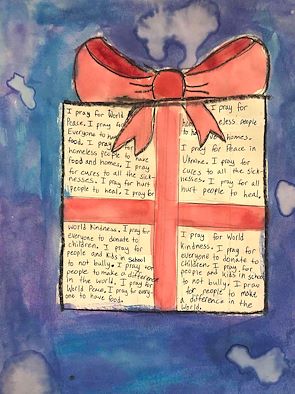 I pray for World
Peace. I pray for
Everyone to have
food. I pray for
homeless people to have
food and homes. I pray
for cures to all the sick-
nesses. I pray for hurt
people to heal. I pray for
I pray for
homeless people
to have homes.
I pray for Peace in
Ukraine. I pray for
cures to all the sick-
nesses. I pray for all
hurt people to heal.
world Kindness. I pray for
everyone to donate to
children. I pray for
people and kids in school
to not bully. I pray for
people to make a difference
in the world. I pray for
World Peace. I pray for every-
one to have food.
I pray for World
Kindness. I pray for
everyone to donate to
children. I pray for
people and kids in school
to not bully. I pray
for people to make
a difference in the
World.